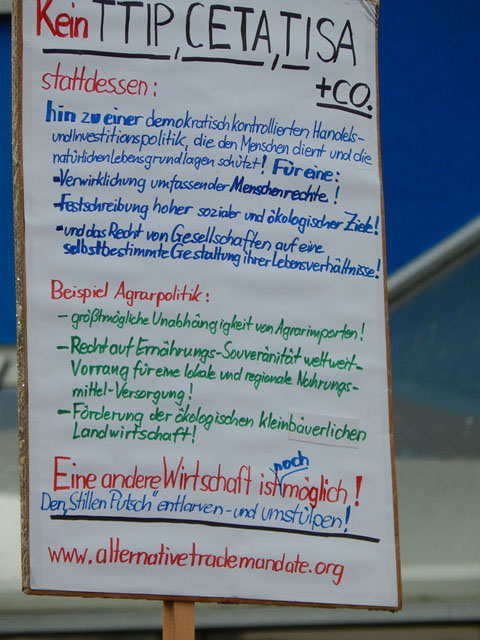 Kein TTIP, CETA, TISA
+CO.
stattdessen:
hin zu einer demokratisch kontrollierten Handels-
und Investitionspolitik, die den Menschen dient und die
natürlichen Lebensgrundlagen schützt! Für eine:
-Verwirklichung umfassender Menschenrechte!
-Festschreibung hoher sozialer und ökologischer Ziele!
-und das Recht von Gesellschaften auf eine
selbstbestimmte Gestaltung ihrer Lebensverhältnisse!
Beispiel Agrarpolitik:
- größtmögliche Unabhängigkeit von Agrarimporten!
- Recht auf Ernährungs-Souveränität weltweit-
Vorrang für eine lokale und regionale Nahrungs-
mittel-Versorgung!
- Förderung der ökologischen kleinbäuerlichen
Landwirtschaft!
noch
Eine andere Wirtschaft ist möglich!
Den „Stillen Putsch" entlarven - und umstülpen!
www.alternativetrademandate.org